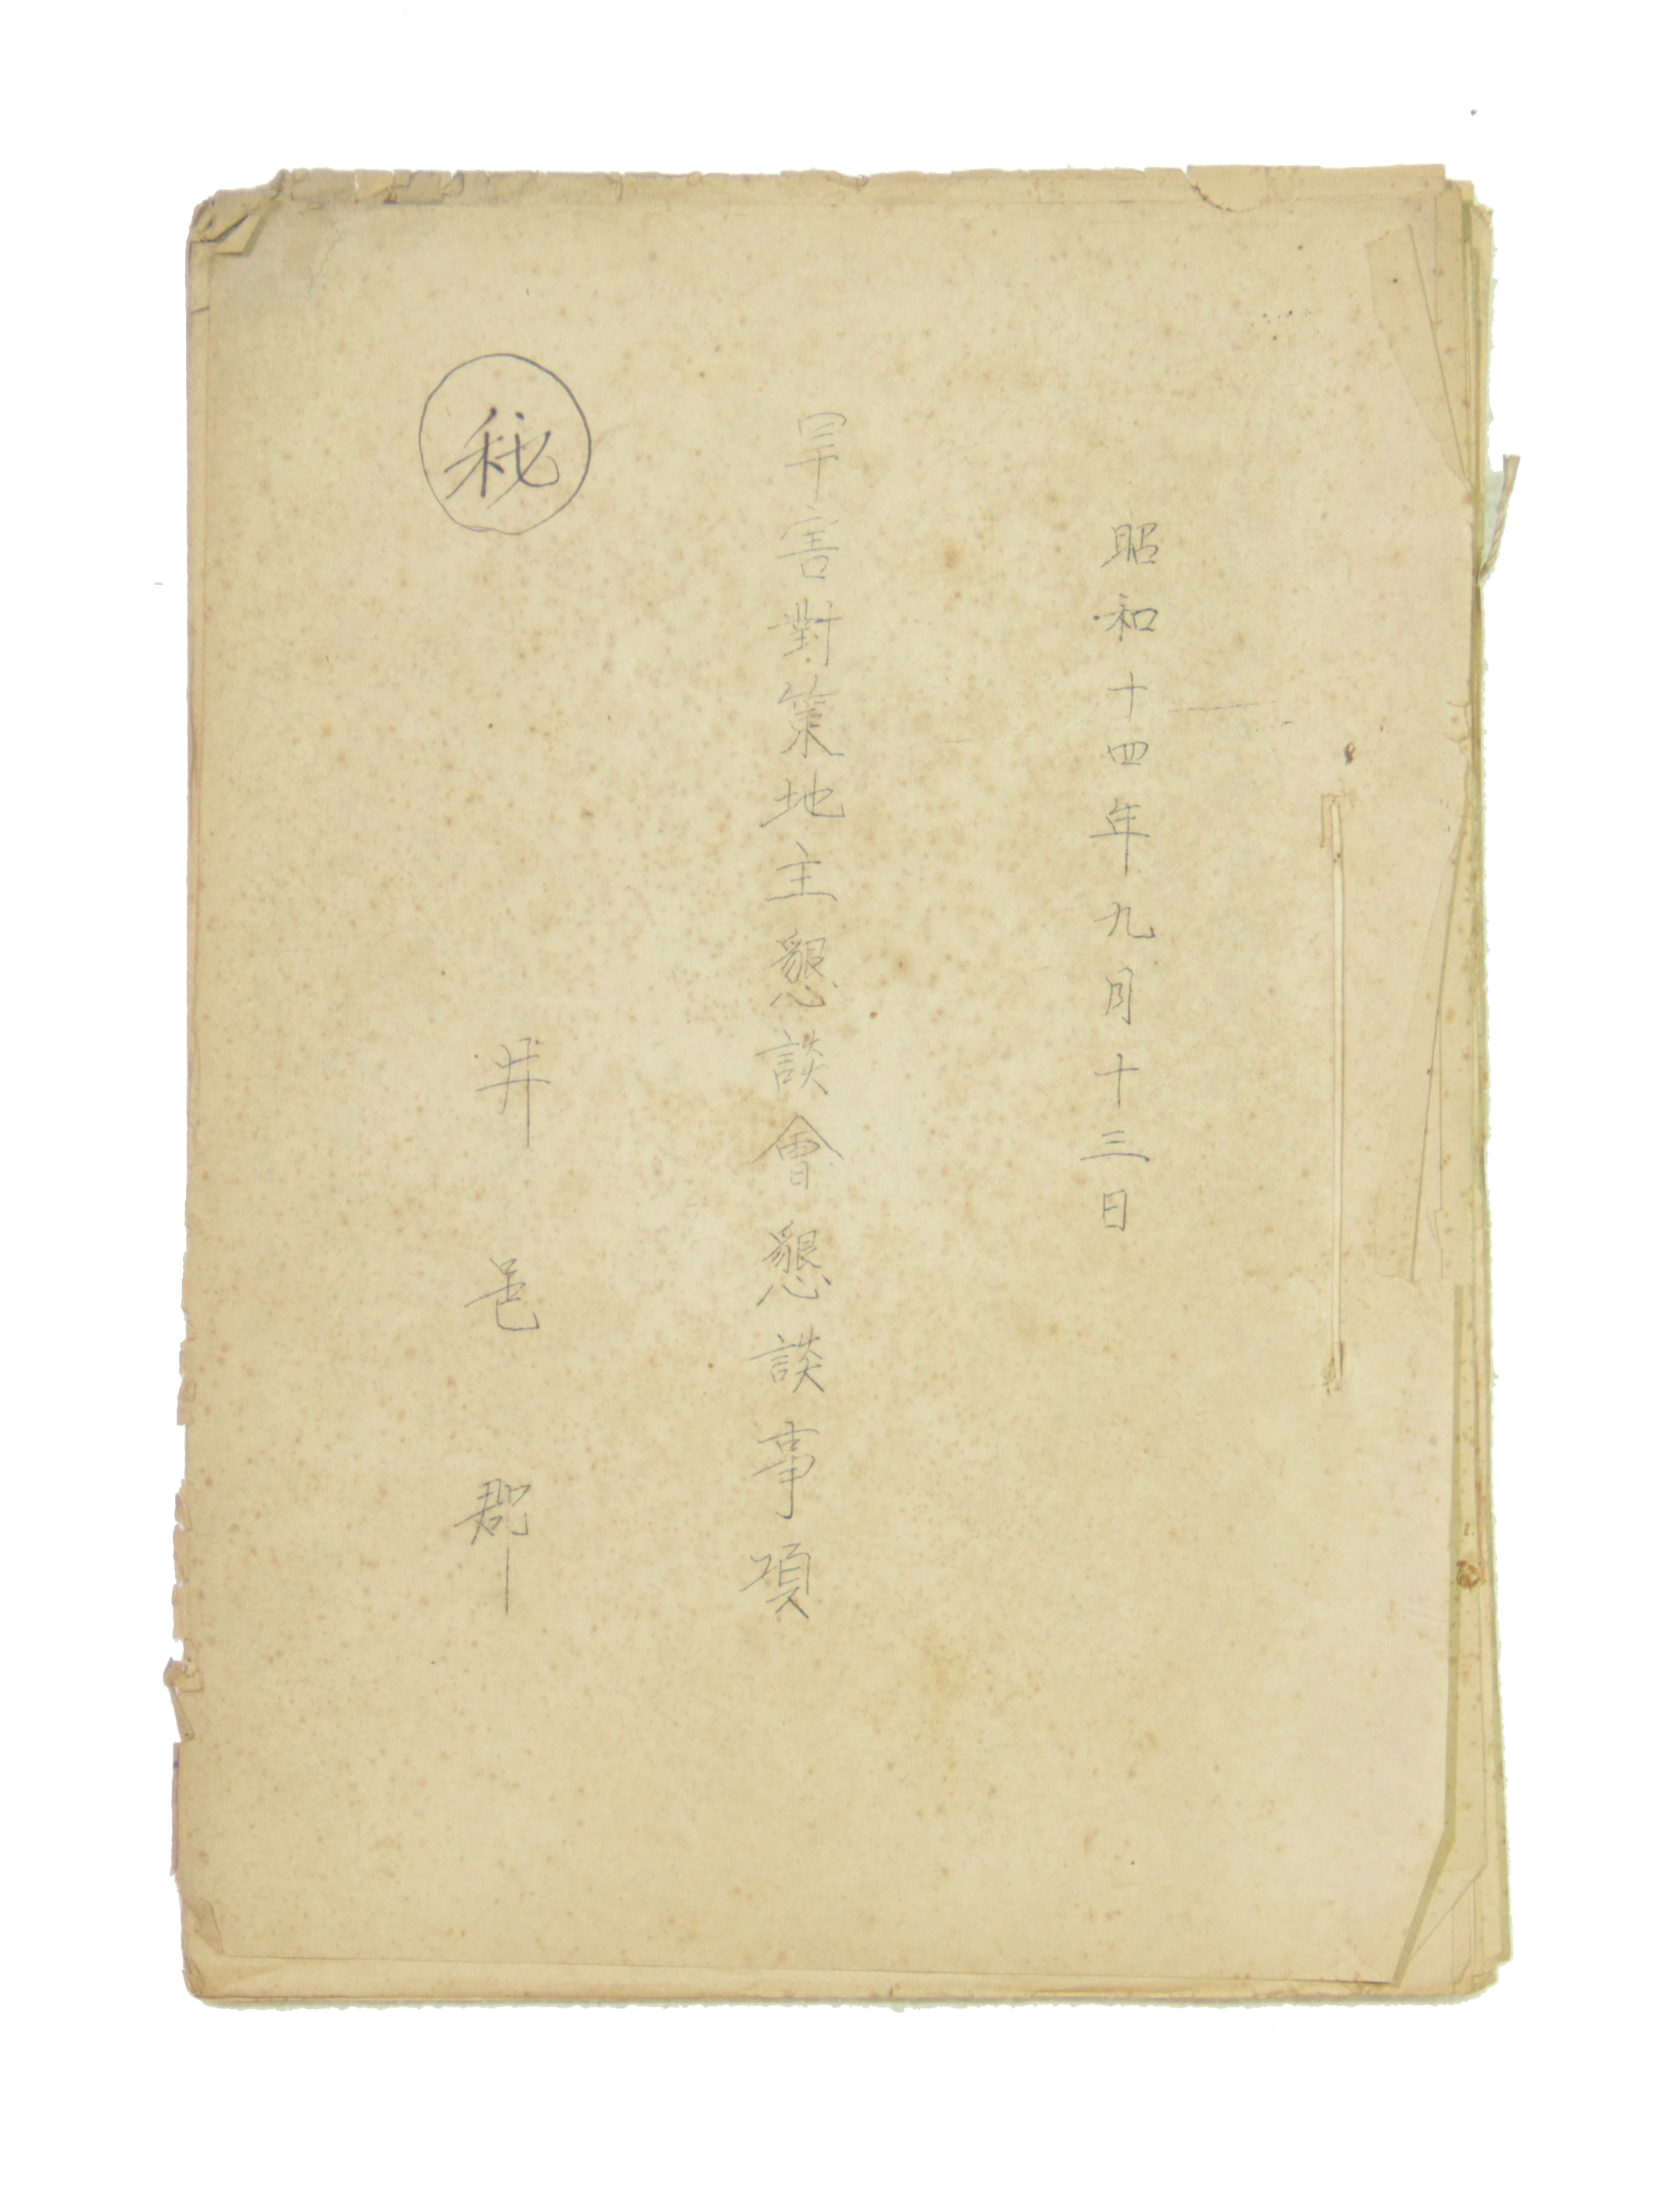 昭和十四年九月十三日
旱害對策地主懇談會懇談事項
秘
井邑郡